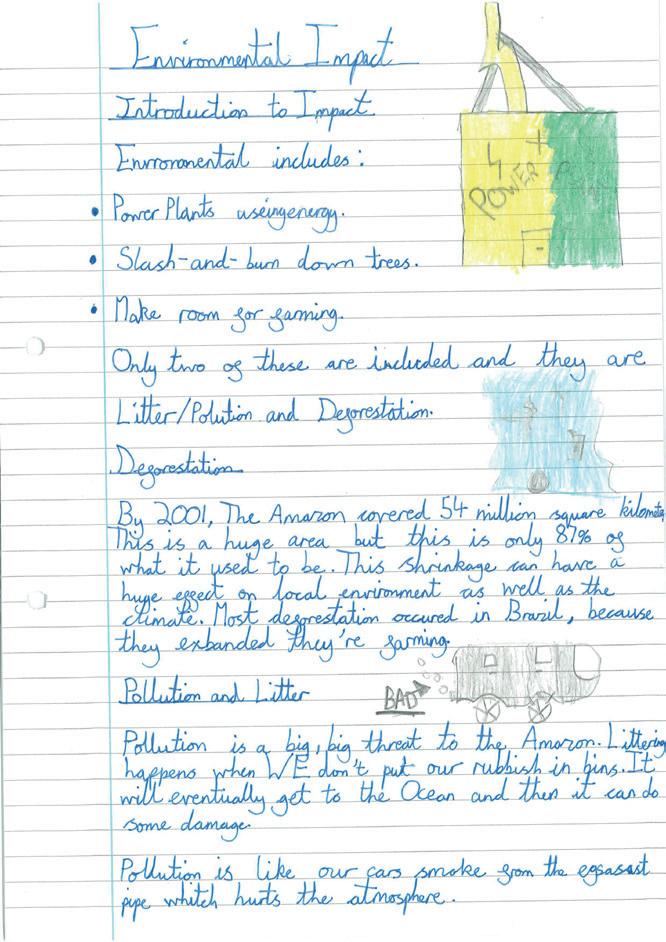 Environmental Impact
Introduction to Impact
Envroromental includes:
POWER +
• Power Plants useingenergy.
• Slash-and-burn down trees.
• Make room for farming.
Only two of these are included and they are
Litter/Polution and Deforestation.
Deforestation
By 2001, The Amazon covered 54 million square kilometres
This is a huge area but this is only 87% of
what it used to be. This shrinkage can have a
huge effect on local environment as well as the
climate. Most deforestation occured in Brazil, because
they exbanded they're farming.
BAD
Pollution and Litter
Pollution is a big, big threat to the Amazon. Littering
happens when WE don't put our rubbish in bins. It
will eventually get to the Ocean and then it can do
some damage.
Pollution is like our cars smoke from the egsasast
pipe whitch hurts the atmosphere.